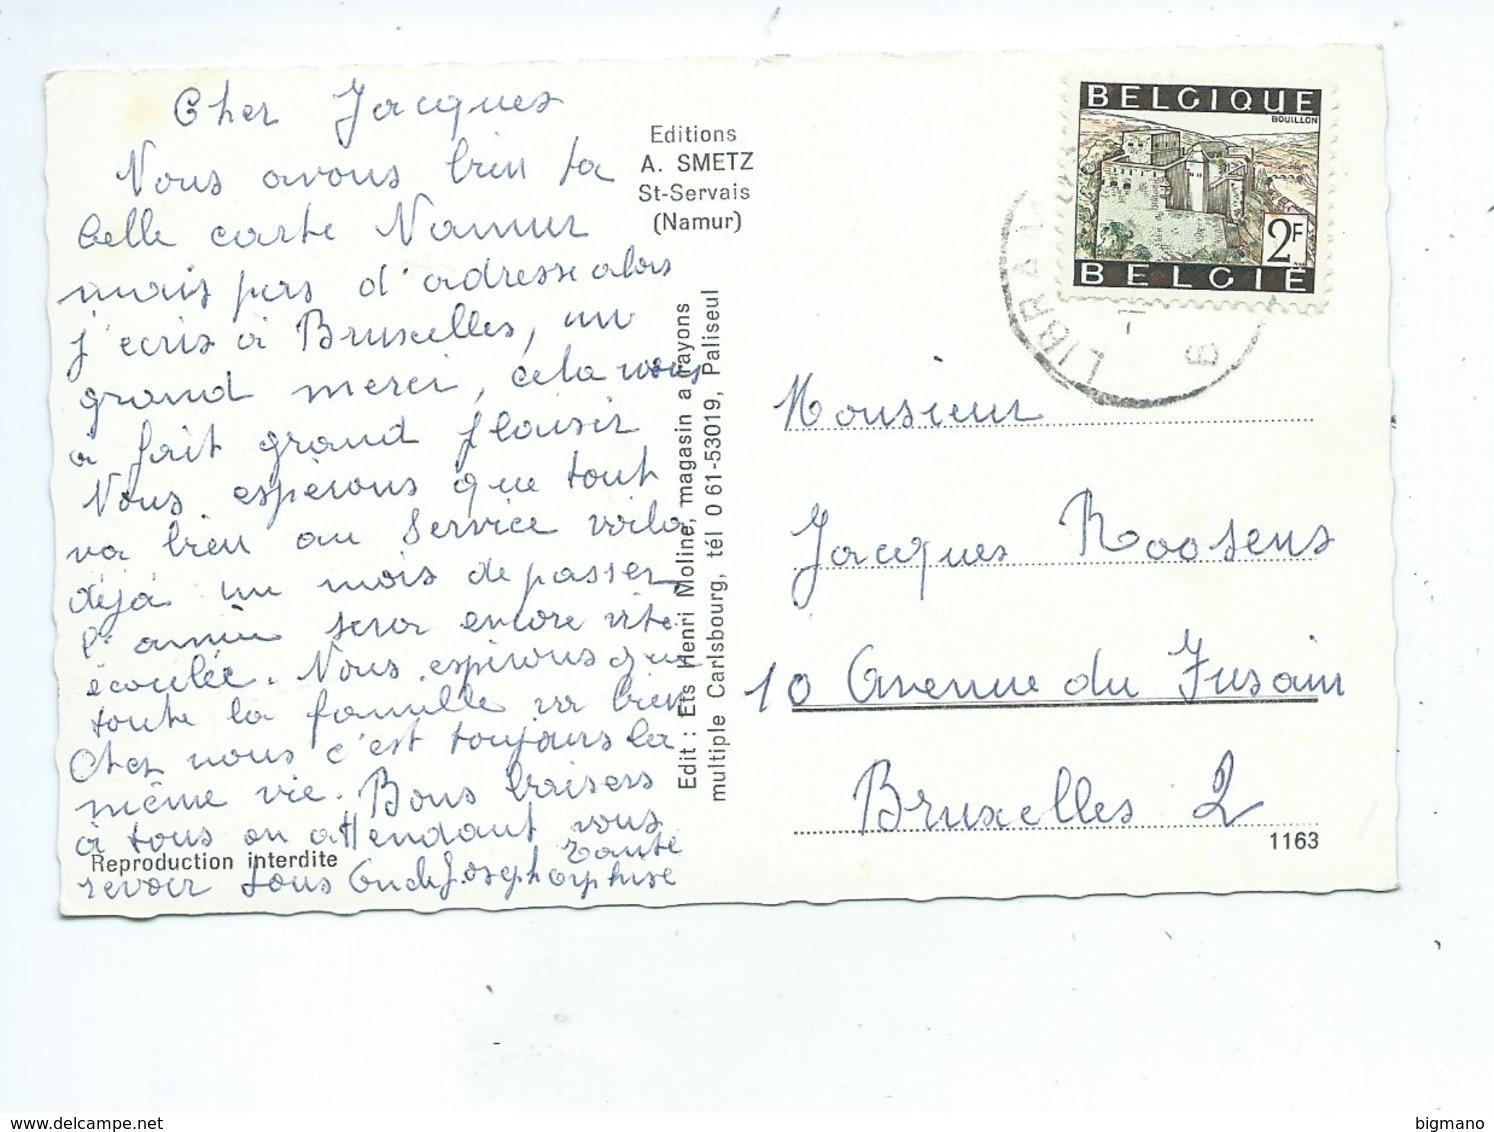 Cher Jacques
Nous avons bien ta
belle carte Namur
mais pas d'adresse alors
j'ecris à Bruxelles, un
grand merci, cela nous
a fait grand plaisir
Nous espérons que tout
va bien au service voila
déjà un mois de passer
l'année sera encore vite
écoulée. Nous espérons que
toute la famille va bien
Chez nous c'est toujours la
même vie. Bons baisers
à tous en attendant vous
revoir tous
Tante
Editions
A. SMETZ
St-Servais
(Namur)
Edit : Ets Henri Moline, magasin a rayons
multiple Carlsbourg, tél 061-53019, Paliseul
Reproduction interdite
BELGIQUE
BOUILLON
2F
BELGIE
LIBRAM
B
Monsieur
Jacques Roosens
10 Avenue du Fusain
Bruxelles 2
1163
www.delcampe.net
bigmano